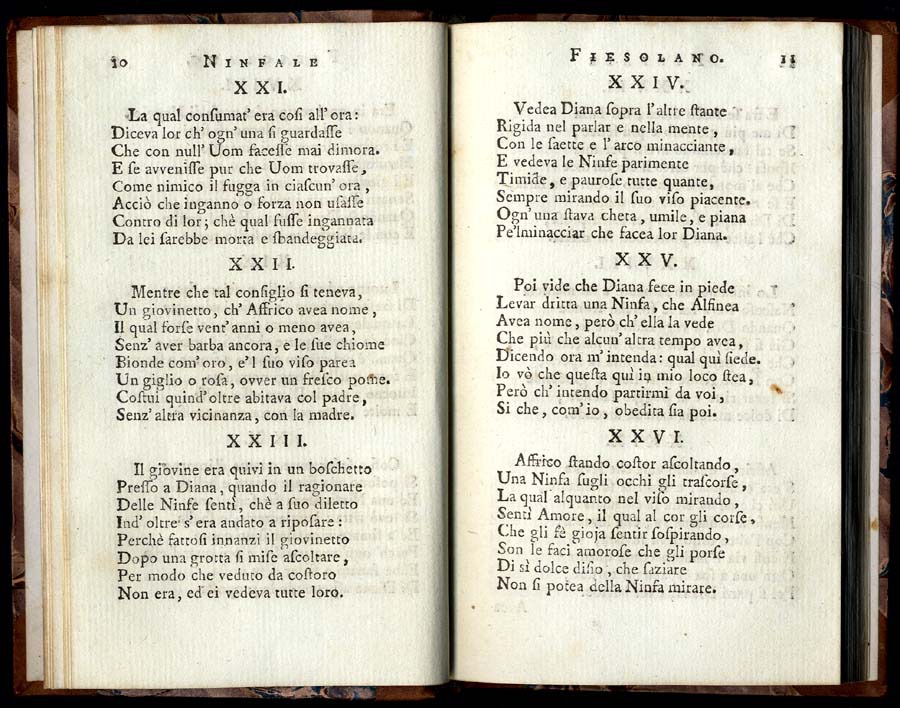 10 NINFALE
XXI.
La qual conſumat' era coſi all' ora:
Diceva lor ch' ogn' una ſi guardaſſe
Che con null' Uom faceſſe mai dimora.
E ſe avveniſſe pur che Uom trovaſſe,
Come nimico il fugga in ciaſcun' ora,
Acciò che inganno o forza non uſaſſe
Contro di lor; chè qual fuſſe ingannata
Da lei ſarebbe morta e sbandeggiata.
XXII.
Mentre che tal conſiglio ſi teneva,
Un giovinetto, ch' Affrico avea nome,
Il qual forſe vent' anni o meno avea,
Senz' aver barba ancora, e le ſue chiome
Bionde com' oro, e'l ſuo viſo parea
Un giglio o roſa, ovver un freſco pome.
Coſtui quind' oltre abitava col padre,
Senz' altra vicinanza, con la madre.
XXIII.
Il giovine era quivi in un boſchetto
Preſſo a Diana, quando il ragionare
Delle Ninfe ſentì, chè a ſuo diletto
Ind' oltre s' era andato a ripoſare:
Perchè fattoſi innanzi il giovinetto
Dopo una grotta ſi miſe aſcoltare,
Per modo che veduto da coſtoro
Non era, ed ei vedeva tutte loro.
FIESOLANO. 11
XXIV.
Vedea Diana ſopra l' altre ſtante
Rigida nel parlar e nella mente,
Con le ſaette e l' arco minacciante,
E vedeva le Ninfe parimente
Timide, e pauroſe tutte quante,
Sempre mirando il ſuo viſo piacente.
Ogn' una ſtava cheta, umile, e piana
Pe'lminacciar che facea lor Diana.
XXV.
Poi vide che Diana fece in piede
Levar dritta una Ninfa, che Alfinea
Avea nome, però ch' ella la vede
Che più che alcun' altra tempo avea,
Dicendo ora m' intenda: qual quì ſiede.
Io vò che queſta quì in mio loco ſtea,
Però ch' intendo partirmi da voi,
Si che, com' io, obedita ſia poi.
XXVI.
Affrico ſtando coſtor aſcoltando,
Una Ninfa ſugli occhi gli traſcorſe,
La qual alquanto nel viſo mirando,
Sentì Amore, il qual al cor gli corſe,
Che gli fè gioja ſentir ſoſpirando,
Son le faci amoroſe che gli porſe
Di sì dolce diſio, che ſaziare
Non ſi potea della Ninfa mirare.